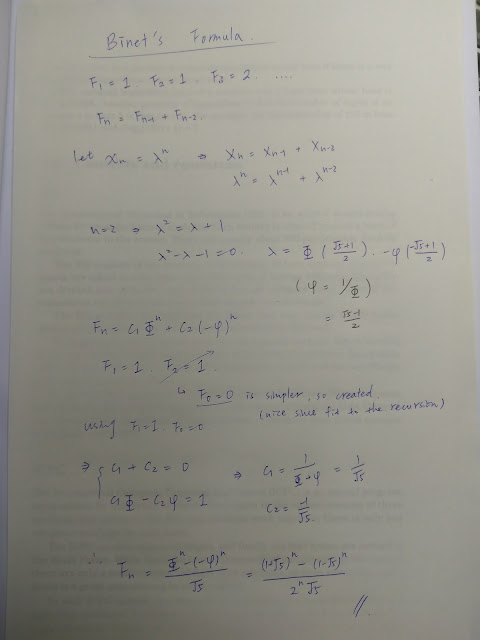 Binet's Formula.
F₁ = 1 F₂ = 1 . F₃ = 2 . ....
Fn = Fn-1 + Fn-2.
let xn = λⁿ ⇒ Xn = Xn-1 + Xn-2
λⁿ = λⁿ⁻¹ + λⁿ⁻²
n=2 ⇒ λ² = λ + 1
λ² - λ - 1 = 0. λ = Φ (√5+1/2) . -φ (-√5+1/2)
(φ = 1/Φ)
= √5-1/2
Fn = C₁ Φⁿ + C₂ (-φ)ⁿ
F₁ = 1 . F₂ = 1 .
↳ F₀ = 0 is simpler, so created.
(nice since fit to the recursion)
using F₁ = 1 . F₀ = 0
⇒ { C₁ + C₂ = 0 ⇒ C₁ = 1/Φ+φ = 1/√5
C₁Φ - C₂φ = 1 C₂ = -1/√5.
Fn = Φⁿ - (-φ)ⁿ/√5 = (1+√5)ⁿ - (1-√5)ⁿ/2ⁿ√5 //.